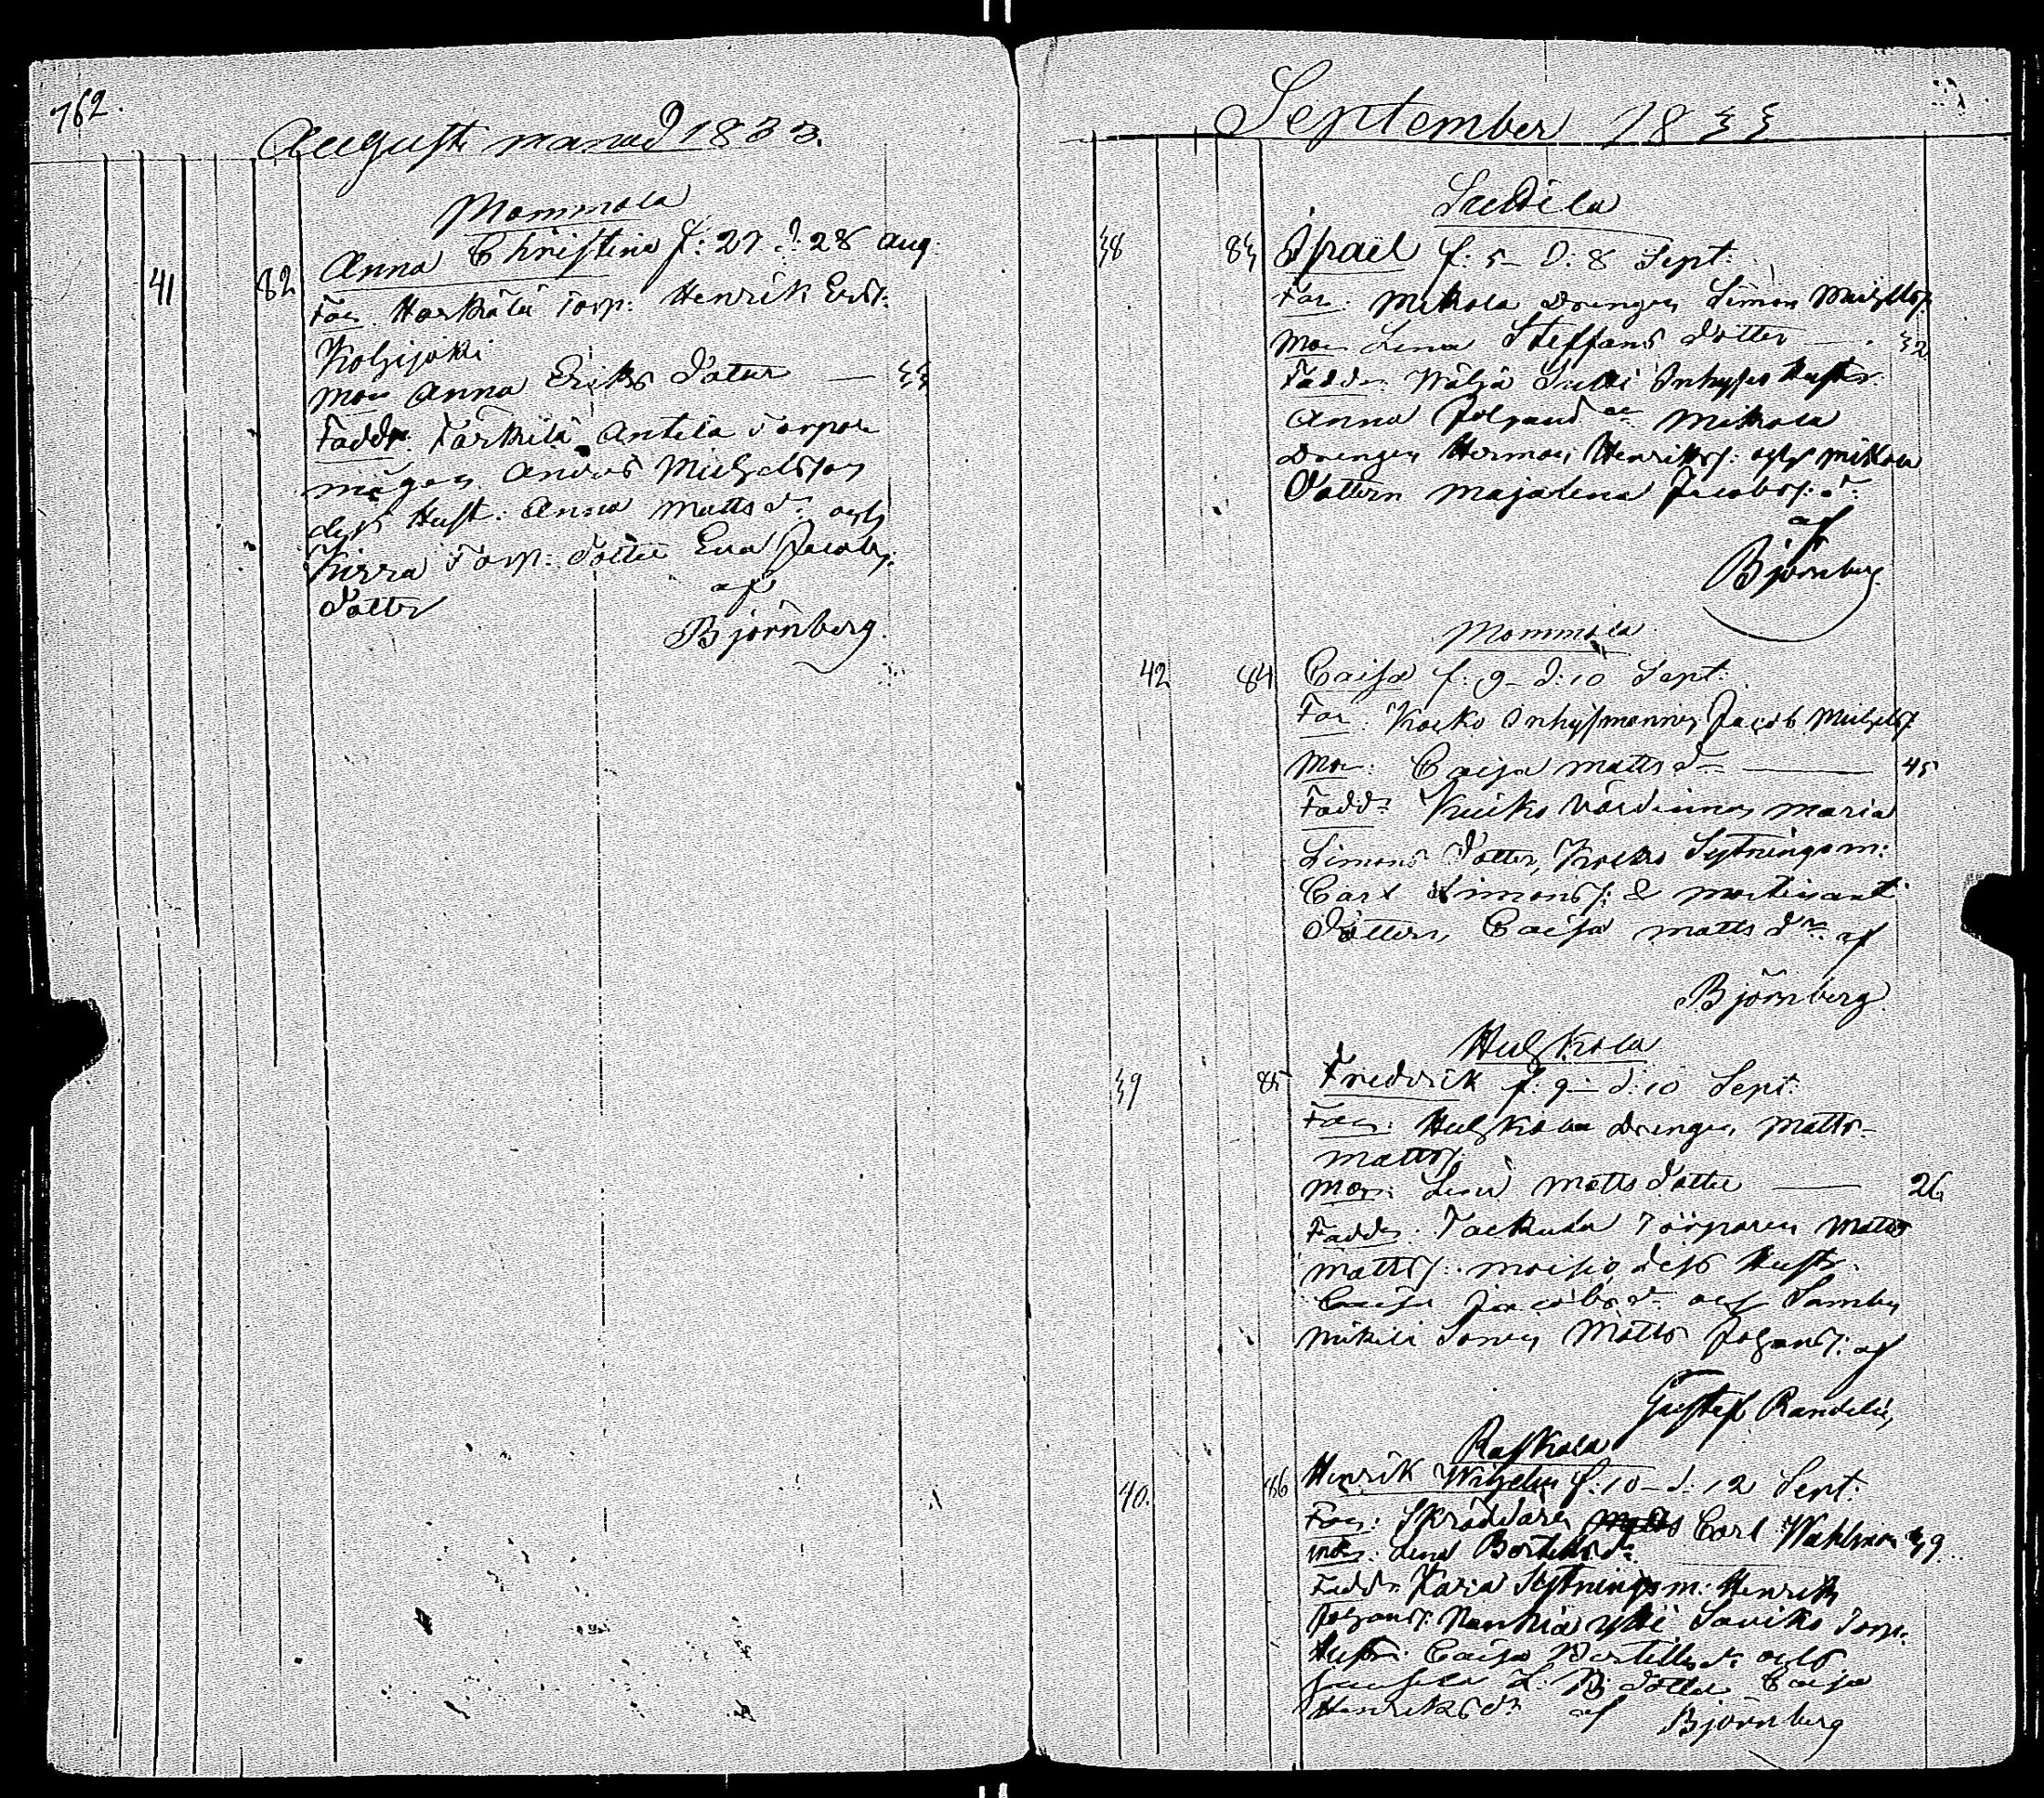 762.
August månad 1833.
Mommola
41 82 Anna Christina f: 27 d: 28 Aug.
Far. Harkälä Torp: Henrik Ers.
Kohijoki
Mor Anna Eriks Dotter — 33
Faddr: Tarkila Antila Torpare
mågen Anders Michelsson
dess Hust: Anna Matts dr och
Kirra Torp: Dotter Eva Jacobs
Dotter af
Björnberg.
September 1833
38 83 Israel f: 5 – d: 8 Sept:
Far: Mikola Drengen Simon Michelss.
Mor Lena Steffans Dotter — 32
Faddr: Inhyses Hustr.
Anna Johansd. Mikola
Drengen Herman Henrikss: och Mikola
Dottern Majalena Jacobs: dr
af
Björnberg.
Mommola
42 84 Caisa f: 9 – d: 10 Sept:
Far: Kocko Inhysmannen Jacob Michelss
Mor: Caisa Matts dr — 45
Faddr: Värdinnan Maria
Simons Dotter, Sytningsm:
Carl Simonss: &
Dottern Caisa Matts dr af
Björnberg
Huhkola
39 85 Fredrik f: 9 – d: 10 Sept.
Far: Huhkola Drengen Matts
Mattss
Mor: Lena Matts Dotter — 26
Faddr: Torparen Matts
Mattss: Moisio dess Hustr.
Caisa Jacobs dr och
Mikola Sonen Matts Johanss: af
Gustaf Randelin
Raskala
40. 86 Henrik Wilhelm f: 10 – d: 12 Sept:
Far: Skräddaren Carl Wahlman 39
Mor: Lena Bertilsdr
Faddr Sytningsm: Henrik
Johanss: Torp:
Hustr: Caisa Bertills dr och
Dotter Caisa
Henriks dr af Björnberg